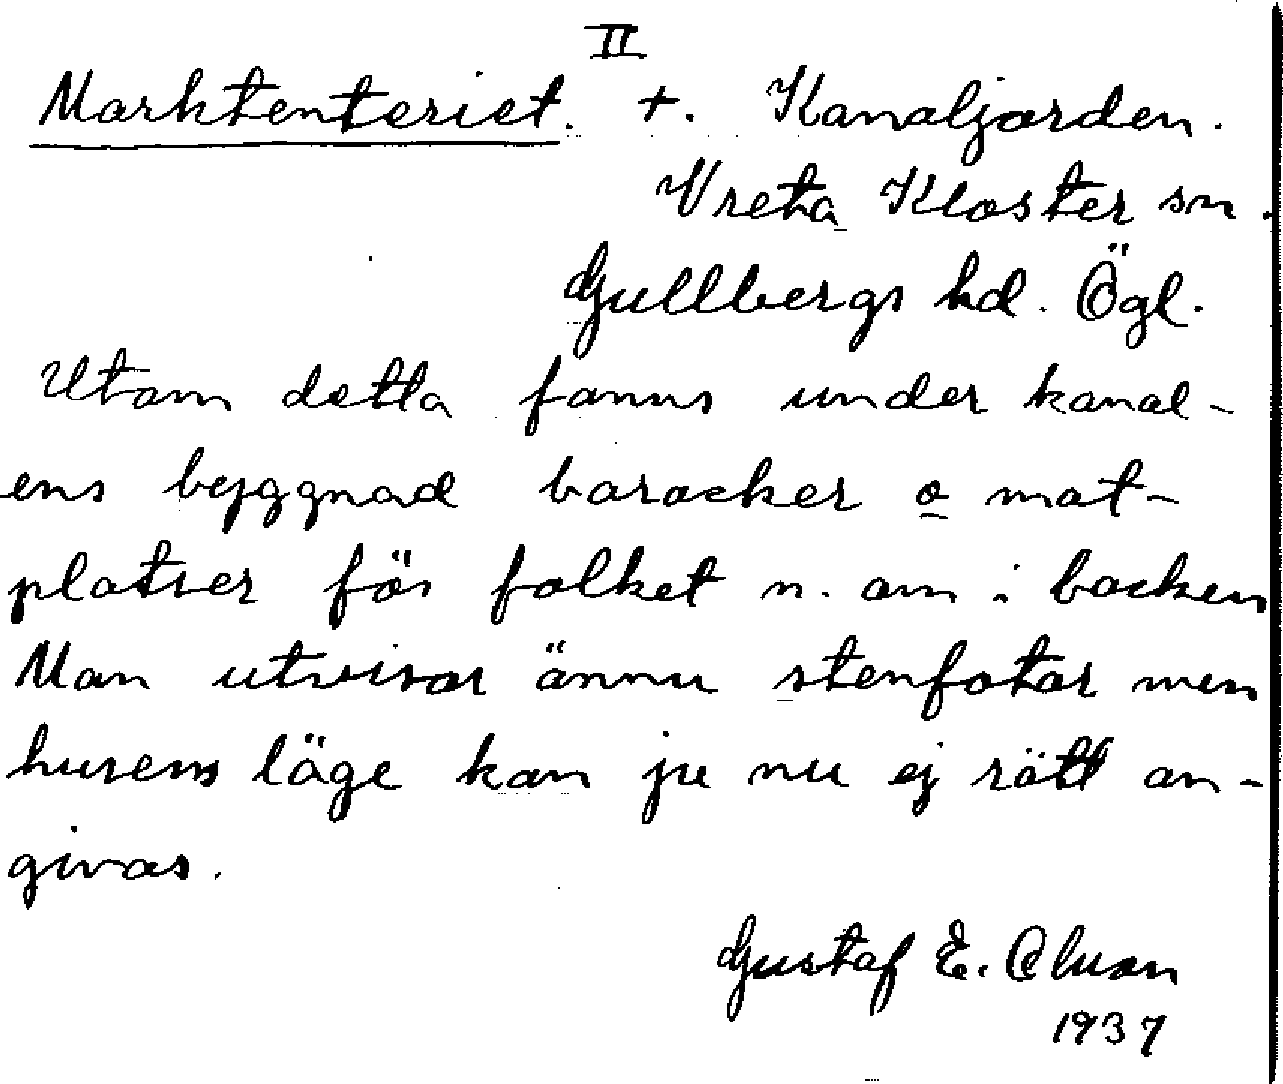 II
Marktenteriet. +. Kanaljorden.
Vreta Kloster sn.
Gullbergs hd. Ögl.
Utom detta fanns under kanal-
ens byggnad baracker o mat-
platser för folket n. om i backen
Man utvisar ännu stenfotar men
husens läge kan ju nu ej rätt an-
givas.
Gustaf E.
1937